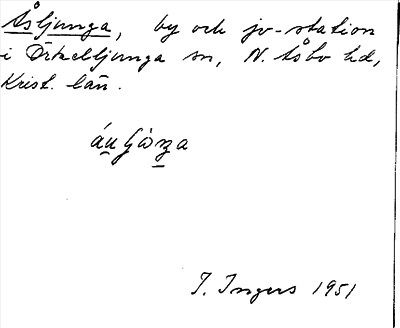 Åsljunga, by och jv-station
i Örkelljunga sn, N. Åsbo hd,
Krist. län.
I. Ingers 1951